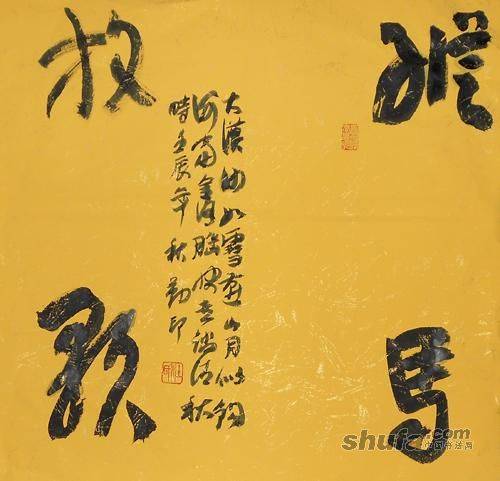 縱馬
放歌
大漠沙如雪燕山月似鉤
何當金絡腦快走踏清秋
時壬辰年秋勤印
shufa.com
中国书法网